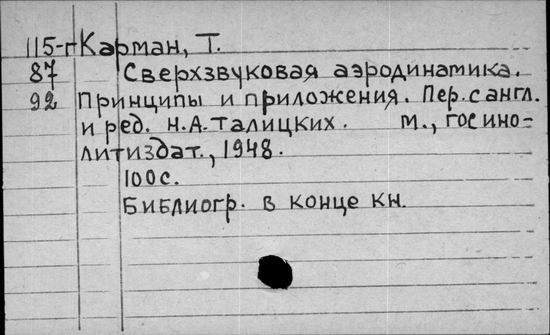 115-г Карман, Т.
87 Сверхзвуковая аэродинамика.
92 Принципы и приложения. Пер. с англ.
и ред. Н.А. Талицких. М., Госино-
литиздат., 1948.
100с.
Библиогр. в конце кн.